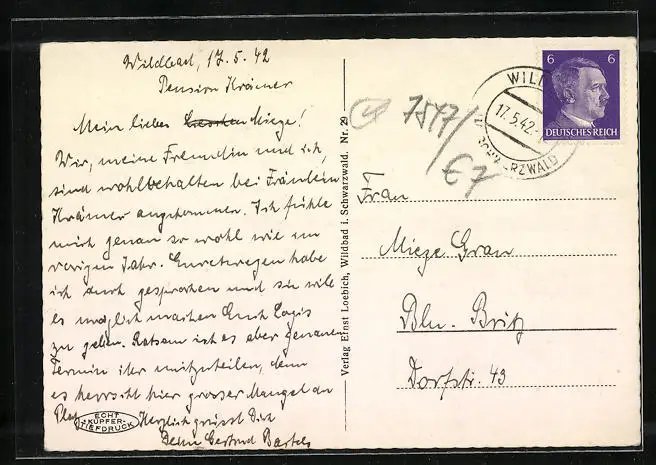 Wildbad, 17.5.42
Pension Krämer
Mein liebes Mieze!
Wir, meine Freundin und ich,
sind wohlbehalten bei Fräulein
Krämer angekommen. Ich fühle
mich genau so wohl wie im
vorigen Jahr. Euretwegen habe
ich durch gesprochen und sie will
es möglich machen Euch Logis
zu geben. Ratsam ist es aber genauen
Termin ihr mitzuteilen, denn
es herrscht hier grosser Mangel an
Platz. Herzlich grüsst Dich
Deine Gertrud Bartels
ECHT
KUPFER-
TIEFDRUCK
Verlag Ernst Loebich, Wildbad i. Schwarzwald. Nr. 29
7547/
€7
WILD
17.5.42
SCHWARZWALD
6 6
DEUTSCHES REICH
Frau
Mieze Grau
Bln. Britz
Dorfstr. 43